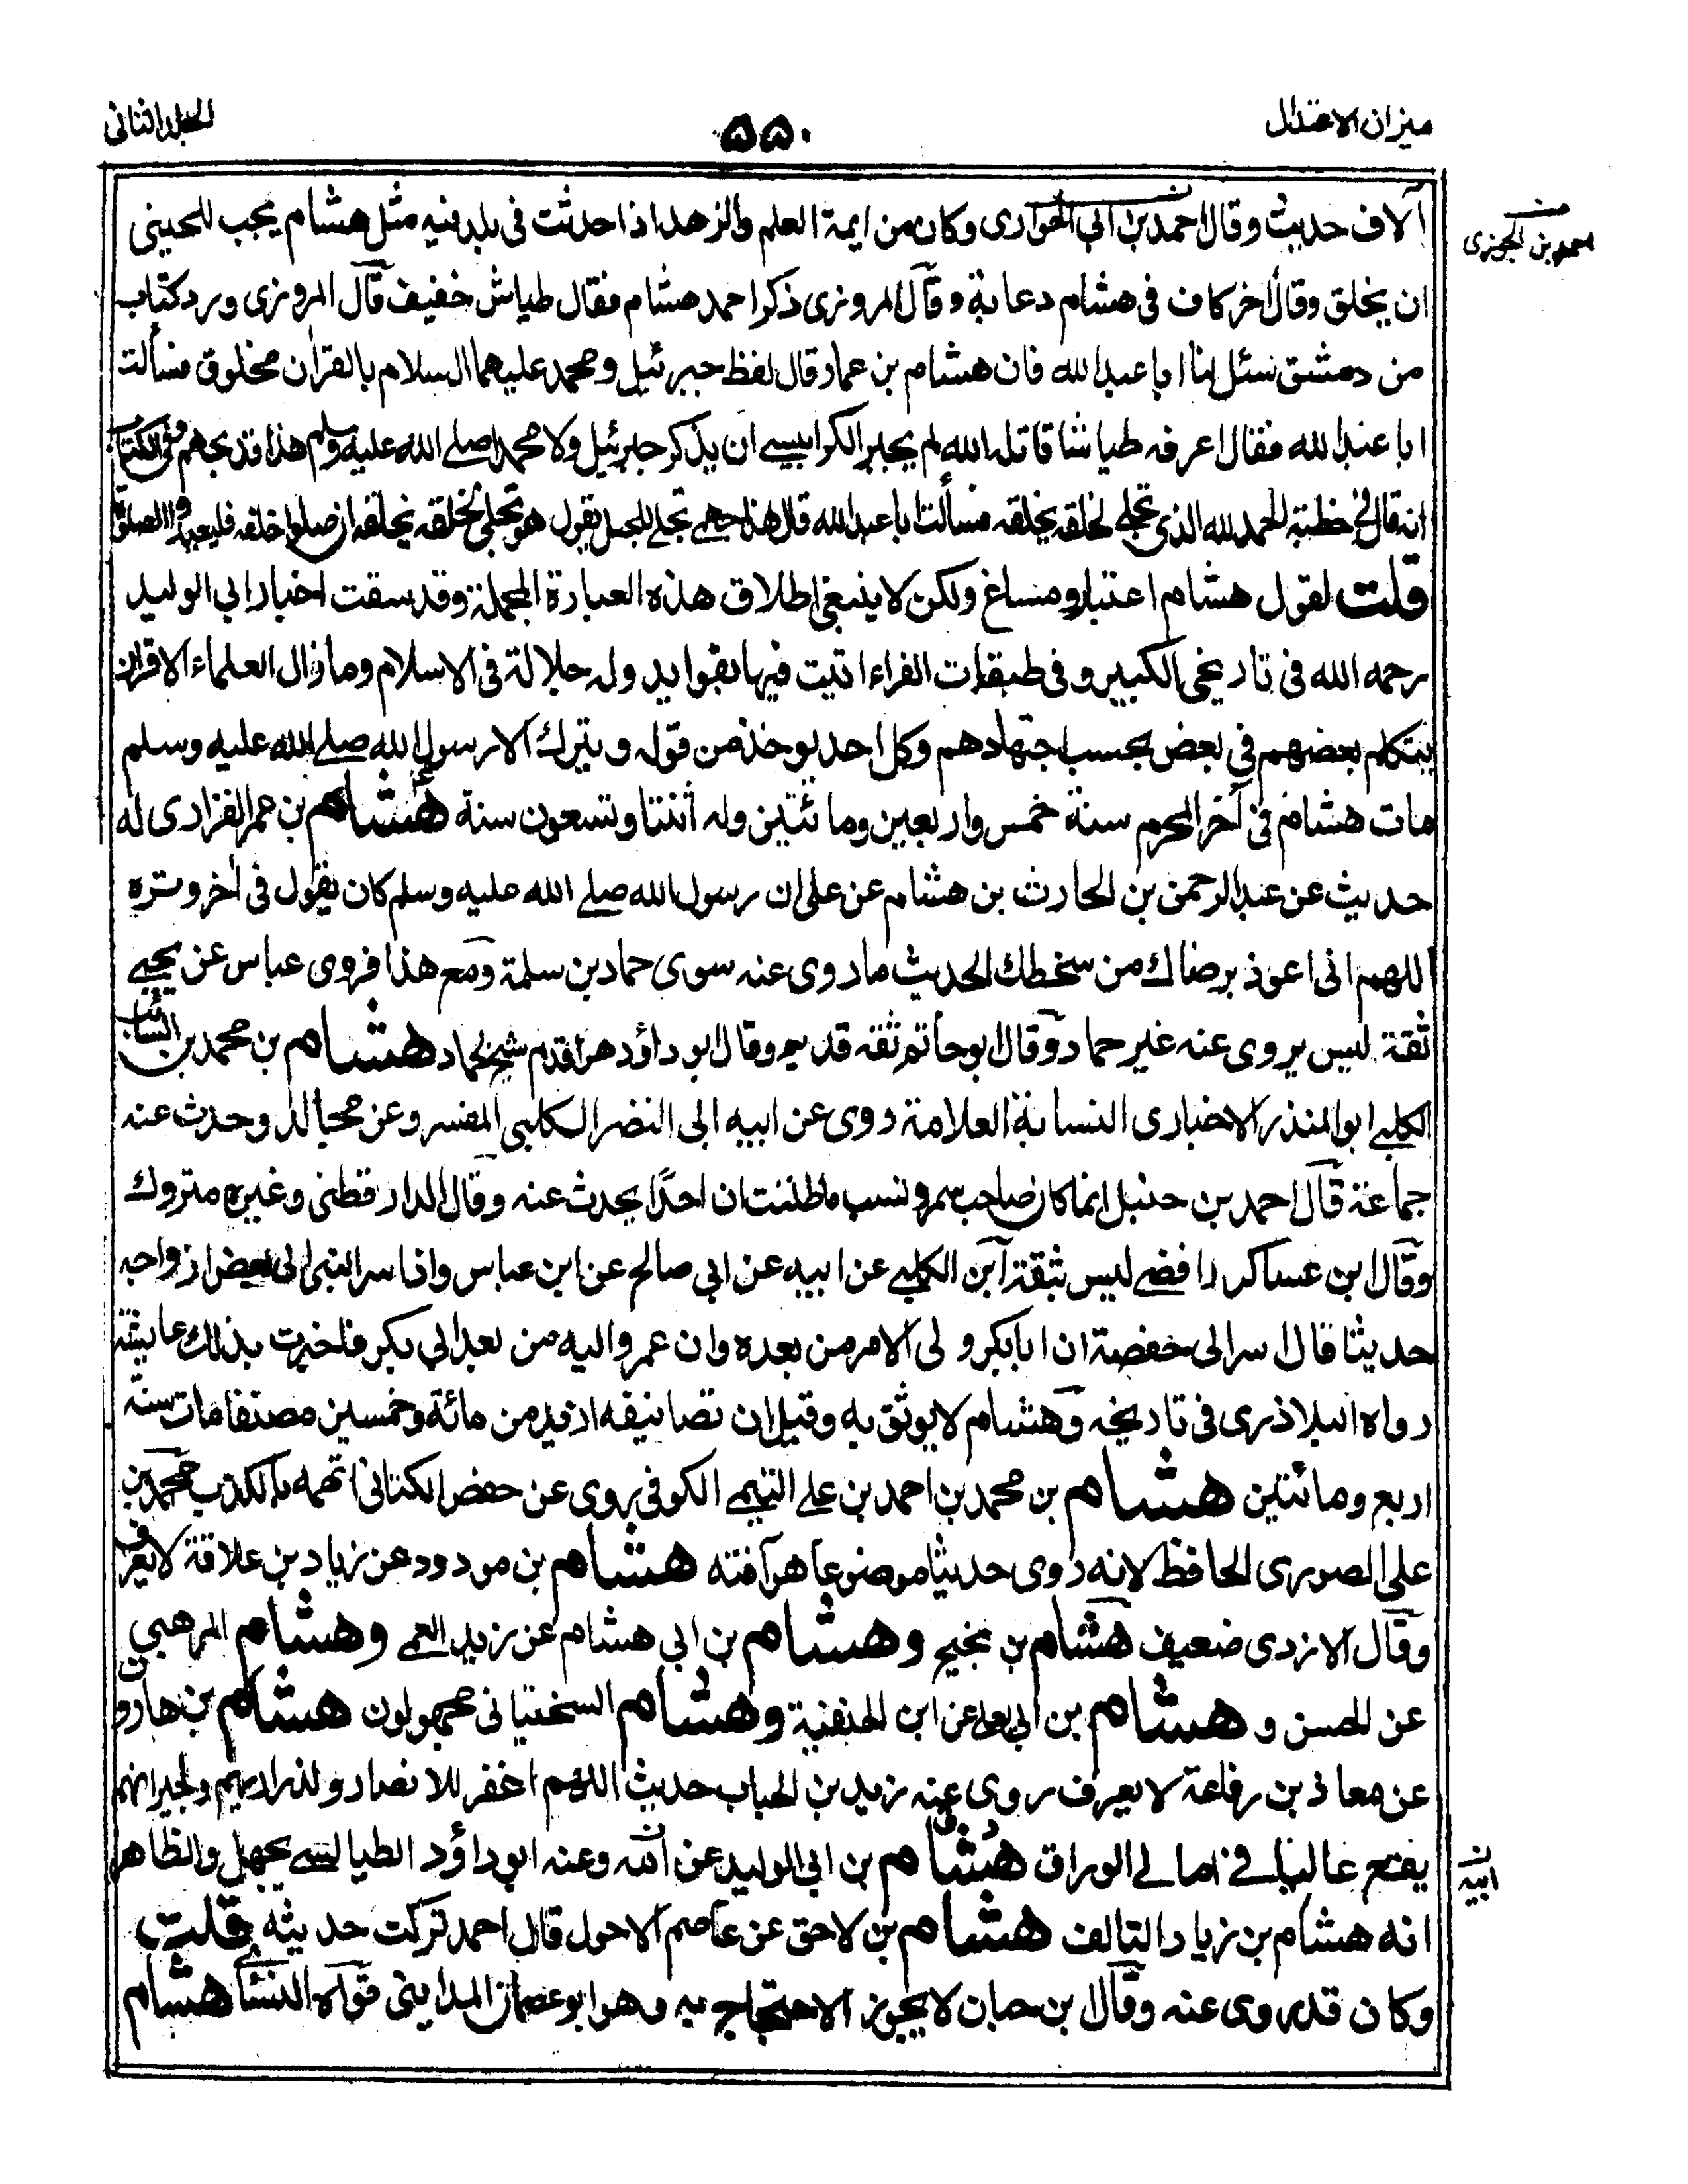 ميزان الاعتدال
۵۵۰
الجلد الثانى
آلاف حديث وقال احمد بن ابى الحوارى وكان من ايمة العلم والزهد اذا حدثت فى بلد فيه مثل هشام يجب للحيتى
محمد بن الجزرى
ان يحلق وقال اخر كان فى هشام دعابة وقال المروزى ذكر احمد هشام فقال طياش خفيف قال المروزى ورد كتاب
من دمشق سئل لنا ابا عبد الله فان هشام بن عمار قال لفظ جبرئيل ومحمد عليهما السلام بالقران مخلوق فسألت
ابا عبد الله فقال اعرفه طياشا قاتله الله لم يجبر الكرابيسے ان يذكر جبرئيل ولا محمدا صلے الله عليه وسلم هذا قد تجهم وفى الكتاب
انه قال فى خطبته الحمد لله الذى تجلے لخلقه بخلقه فسألت ابا عبد الله قال هذا جهمے تجلے للجبل يقول هو تجلى لخلقه بخلقه ان صلوا خلفه فليعيدوا الصلوة
قلت لقول هشام اعتبار ومساغ ولكن لا ينبغى اطلاق هذه العبارة المجملة وقد سقت اخبار ابى الوليد
رحمه الله فى تاريخى الكبير و فى طبقات القراء اتيت فيها بفوايد وله جلالة فى الاسلام وما زال العلماء الاقران
يتكلم بعضهم فى بعض بحسب اجتهادهم وكل احد يوخذ من قوله ويترك الا رسول الله صلے الله عليه وسلم
مات هشام فى آخر المحرم سنة خمس واربعين ومائتين وله اثنتا وتسعون سنة هشام بن عمر الفزارى له
حديث عن عبد الرحمن بن الحارث بن هشام عن على ان رسول الله صلے الله عليه وسلم كان يقول فى اخر وتره
اللهم انى اعوذ برضاك من سخطك الحديث ما روى عنه سوى حماد بن سلمة ومع هذا فروى عباس عن يحيے
ثقة ليس يروى عنه غير حماد وقال ابو حاتم ثقه قديم وقال ابو داؤد هو اقدم شيخ لحماد هشام بن محمد بن السائب
الكلبے ابو المنذر الاخبارى النسابة العلامة روى عن ابيه ابى النضر الكلبى المفسر وعن مجالد وحدث عنه
جماعة قال احمد بن حنبل انما كان صاحب سمر ونسب ما ظننت ان احدًا يحدث عنه وقال الدارقطنى وغيره متروك
وقال ابن عساكر رافضے ليس بثقة ابن الكلبے عن ابيه عن ابى صالح عن ابن عباس واذا سر النبى الى بعض ازواجه
حديثا قال اسر الى حفصة ان ابا بكر ولى الامر من بعده وان عمر واليه من بعد ابى بكر فاخبرت بذلك عايشة
رواه البلاذرى فى تاريخه وهشام لا يوثق به وقيل ان تصانيفه ازيد من مائة وخمسين مصنفا مات سنة
اربع ومائتين هشام بن محمد بن احمد بن علے التيمے الكوفى روى عن حفص الكتانى اتهمه بالكذب محمد بن
على الصورى الحافظ لانه روى حديثا موضوعا هو آفته هشام بن مودود عن زياد بن علاقة لا يعرف
وقال الازدى ضعيف هشام بن نجيح وهشام بن ابى هشام عن زيد العمے وهشام المرهبى
عن الحسن و هشام بن ابى يعلے عن ابن الحنفية وهشام السختيانى مجهولون هشام بن هارون
عن معاذ بن رفاعة لا يعرف روى عنه زيد بن الحباب حديث اللهم اغفر للانصار ولذراريهم ولجيرانهم
يقع عاليا فے امالے الوراق هشام بن ابى الوليد عن امه وعنه ابو داؤد الطيالسے يجهل والظاهر
ابيه
انه هشام بن زياد التالف هشام بن لاحق عن عاصم الاحول قال احمد تركت حديثه قلت
وكان قد روى عنه وقال بن حبان لا يجوز الاحتجاج به وهو ابو عثمان المداينى قواه النسائى هشام